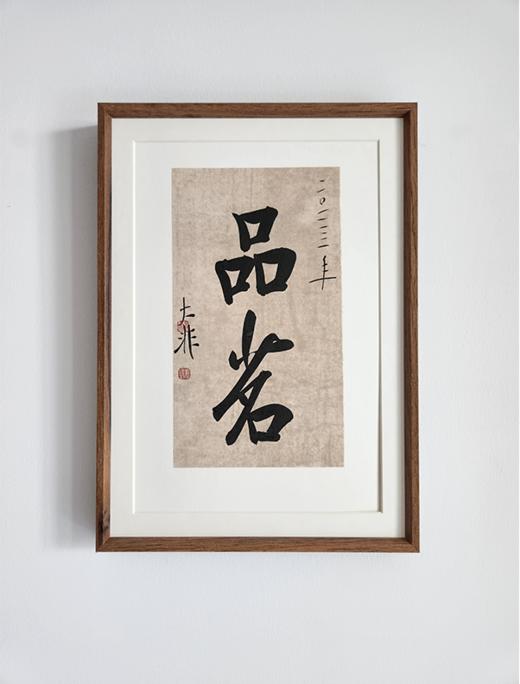 二〇二三年
品茗
大非